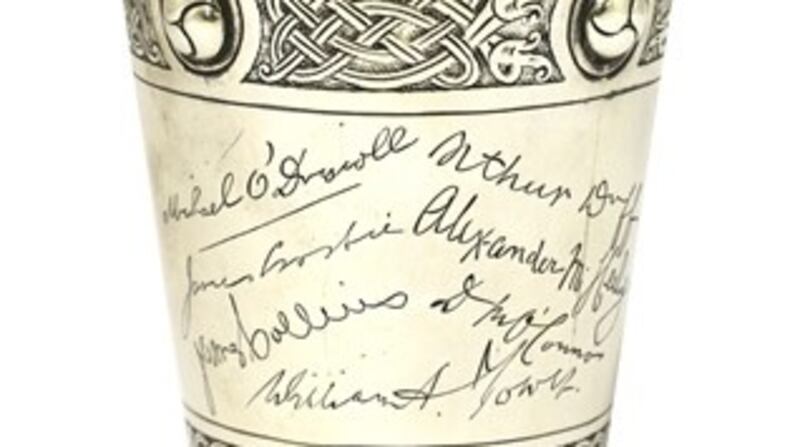 Michael O'Driscoll
Arthur Duff
James Crosbie
Alexander M. Healy
James Collins
D McConnor
William A.